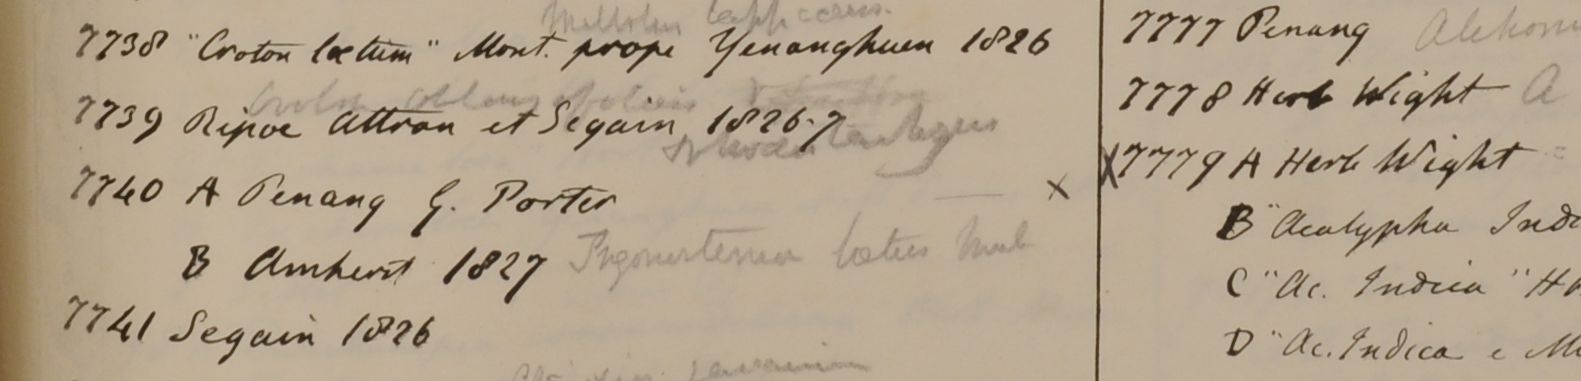 7738 "Croton lætum" Mont. prope Yenanghuen 1826
7739 Ripoe Attran et Segain 1826-7
7740 A Penang G. Porter
— x
B Amherst 1827
7741 Segain 1826
7777 Penang
7778 Herb Wight A
X 7779 A Herb Wight
B "Acalypha Indi
C "Ac. Indica" H
D "Ac. Indica e M